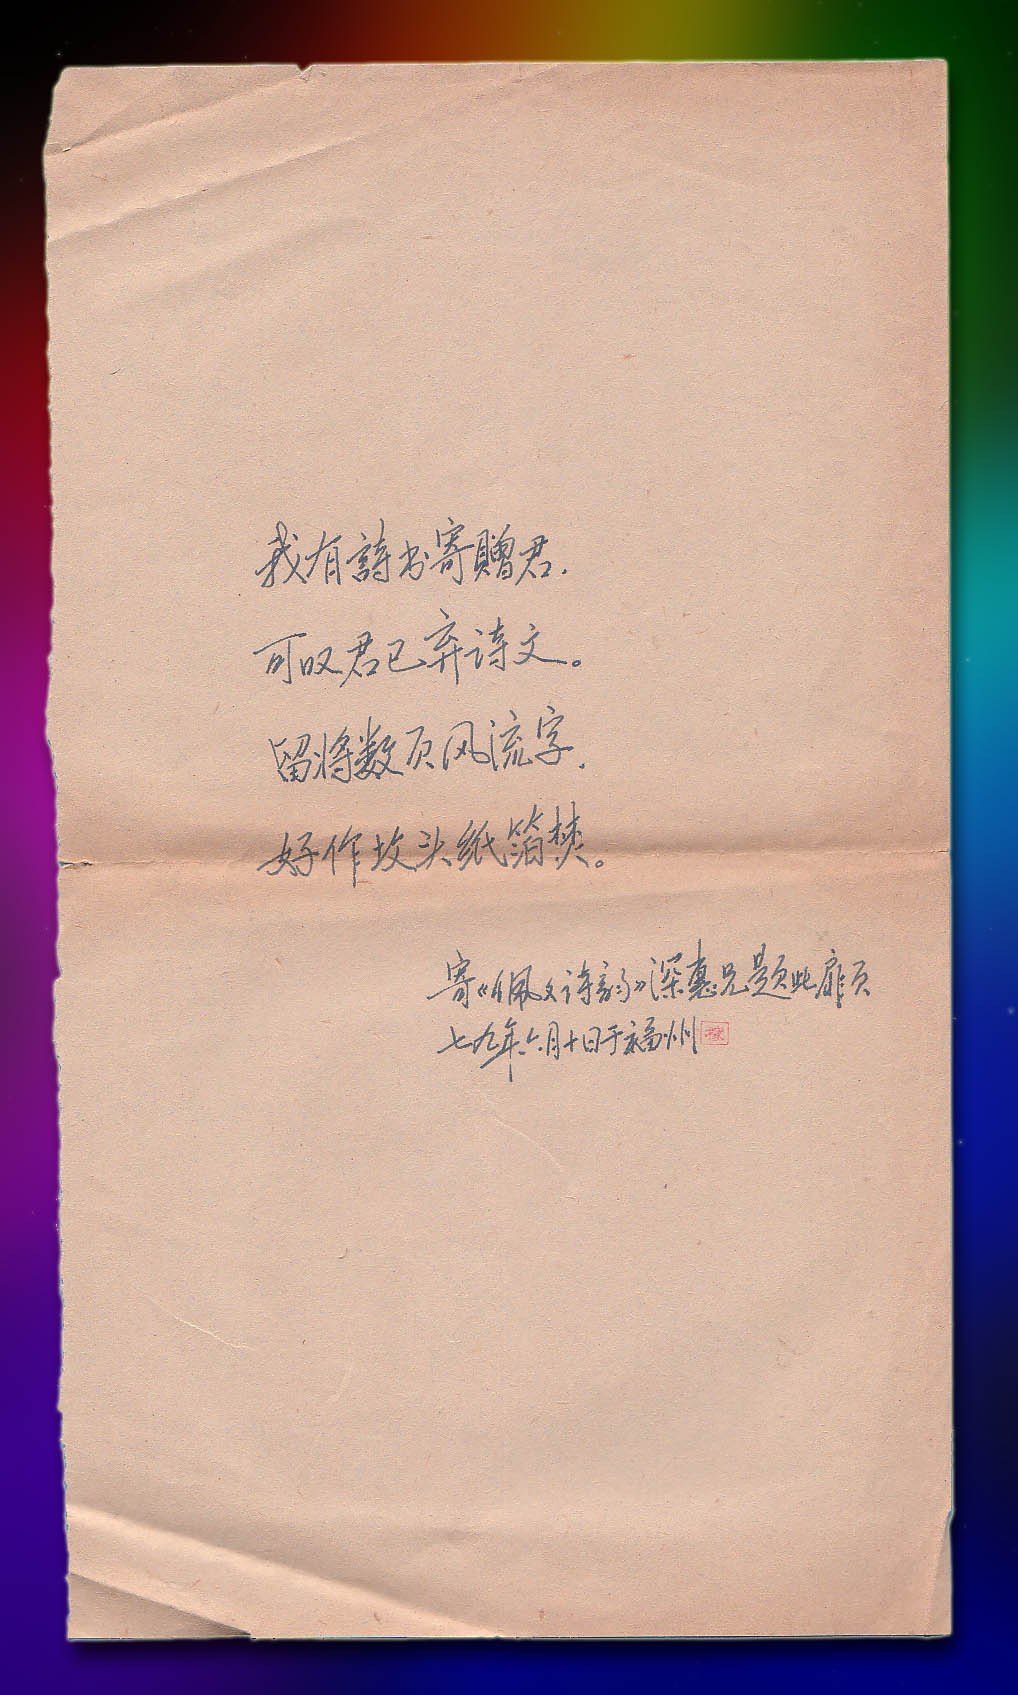 我有詩书寄贈君.
可叹君已弃诗文。
留将数页风流字.
好作坟头纸箔焚。
寄《佩文诗韵》深惠兄题此扉页
七九年六月十日于福州